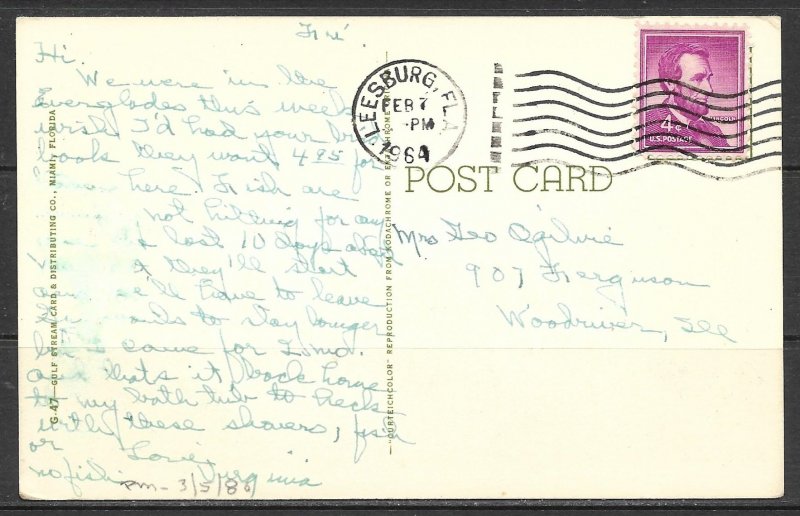 Fri
Hi.
We were in the
Everglades this week
wish I'd had your
books they want 4.85 for
here. Fish are
not hitting for any
last 10 days
they'll start
we'll have to leave
to stay longer
came for 2 mo.
and thats it, back home
to my bath tub to heck
with these showers, fish
or Love
no fish Virginia
PM - 3/5/86
G-47—GULF STREAM CARD & DISTRIBUTING CO., MIAMI, FLORIDA
"CURTEICHCOLOR" REPRODUCTION FROM KODACHROME OR EKTACHROME
LEESBURG, FLA
FEB 7
PM
1964
LINCOLN
4¢
U.S. POSTAGE
POST CARD
Mrs Geo Ogilvie
907 Ferguson
Woodriver, Ill